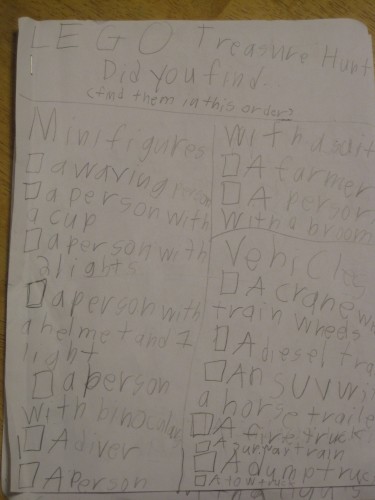 LEGO Treasure Hunt
Did you find...
(find them in this order)
Minifigures
a waving person
a person with
a cup
a person with
2 lights
a person with
a helmet and 1
light
a person
with binocular
A diver
A Person
with a suit
A farmer
A person
with a broom
Vehicles
A crane w
train wheels
A diesel tra
An SUV wit
a horse traile
A fire truck
A subway train
A dumptruc
A tow truck